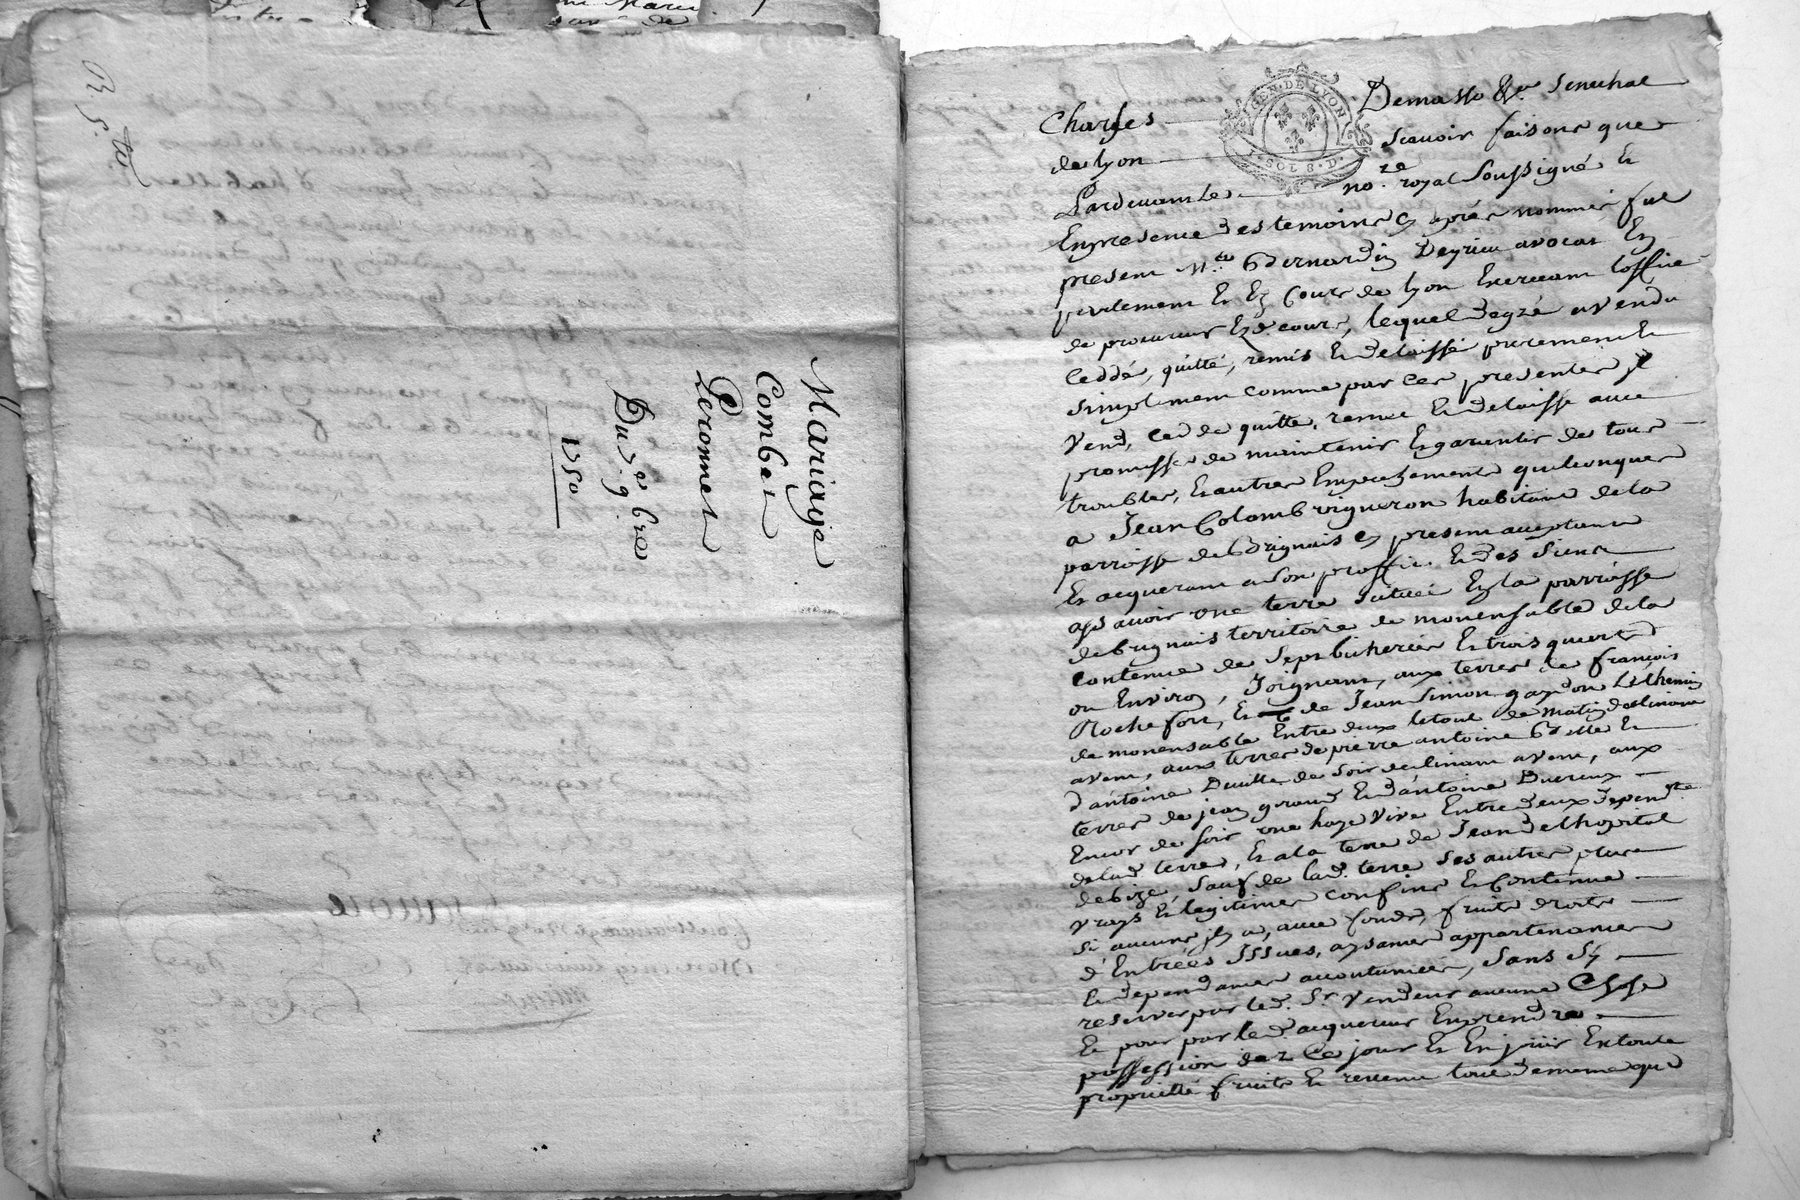 Mariage
Combet
Peronnet
Du 7.e 9.bre
1750
GEN. DE LYON
SOLS. D.
Charles Demasso &a. Senechal
de lyon Scavoir faisons que
Pardevant le no.re royal soussigné Et
En presence des temoins cy après nommés fut
present M.e Bernardin Deyrieu avocat En
parlement Et Ez Cours de lyon Exerceant l'office
de procureur Ezd. cours, lequel degré a vendu
Ceddé, quitté, remis Et delaissé purement Et
simplement comme par ces presentes il
Vend, cedde quitte, remet Et delaisse avec
promesse de maintenir Et garentir de tous
troubles, Et autres Empechements quelconques
a Jean Colomb vigneron habitant de la
parroisse de Brignais cy present acceptant
Et acquerant a son proffit Et des siens
asscavoir une terre scituée En la parroisse
de brignais territoire de monensable de la
contenue de Sept bicherées Et trois quarts
ou Environ, Joignant, aux terres de françois
Rochefort, Et de Jean Simon gaydon le Chemin
de monensable Entre deux le tout de matin declinant
a vent, aux terres de pierre antoine et
d'antoine de soir declinant a vent, aux
terres de jean giraud Et d'antoine
Encor de soir une haye vive Entre deux depend.te
de lad terre, Et a la terre de Jean Delhopital
de bize, sauf de lad. terre ses autres plus
vrays Et legitimes confins Et Contenue
si aucuns il y a, avec fonds, fruits droits
d'Entrées Issues, aysances appartenances
Et dependances accoutumées, sans sy
reserver par led. Sr. Vendeur aucune Chose
Et pour par led acquereur En prendre
possession dez Ce jour Et En jouir En toute
proprieté fruits Et revenu tout de meme que